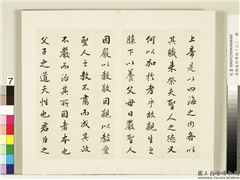 上帝是以四海之內各以
其職來祭夫聖人之德又
何以加於孝乎故親生之
膝下以養父母日嚴聖人
因嚴以教敬因親以教愛
聖人之教不肅而成其政
不嚴而治其所因者本也
父子之道天性也君臣之
7
8